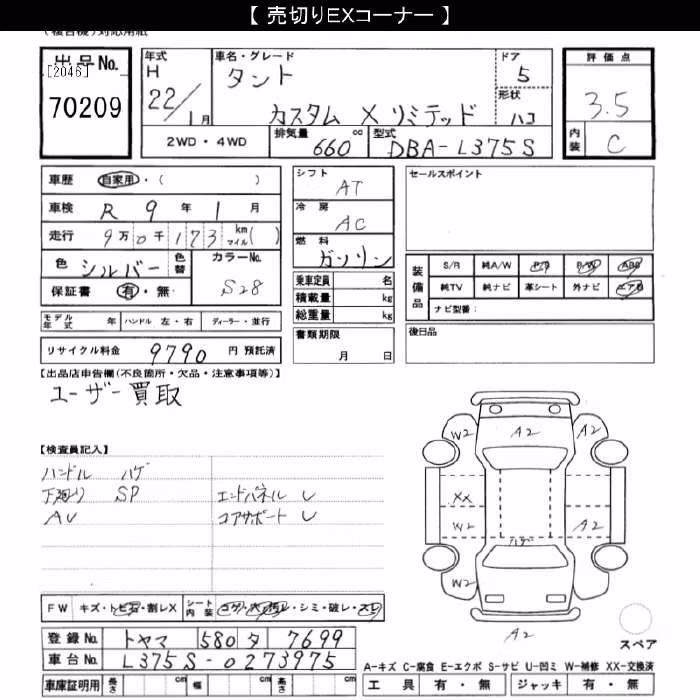 【 売切りEXコーナー 】
出品No.
[2046]
70209
年式
H 22/1月
車名・グレード
タント
カスタム X リミテッド
ドア
5
形状
ハコ
評価点
3.5
内装
C
2WD・4WD
排気量 660 cc
型式 DBA-L375S
車歴 自家用・( )
車検 R 9 年 1 月
走行 9万0千173 km マイル( )
色 シルバー 色替
カラーNo. S28
保証書 有・無
シフト
AT
冷房
AC
燃料
ガソリン
乗車定員 名
積載量 kg
総重量 kg
セールスポイント
装備品
S/R 純A/W P/S P/W ABS
純TV 純ナビ 革シート 外ナビ エアB
ナビ型番:
モデル年式 年 ハンドル 左・右 ディーラー・並行
書類期限
月 日
後日品
リサイクル料金 9790 円 預託済
【出品店申告欄(不良箇所・欠品・注意事項等)】
ユーザー買取
【検査員記入】
ハンドル ハゲ
下廻り SP エンドパネル U
AU コアサポート U
W2 A2 A2
XX
W2 A2
ハゲ
W2
A2
スペア
FW キズ・トビ石・割レX シート内装 コゲ・・シミ・破レ・スレ
登録No. トヤマ 580 タ 7699
車台No. L375S-0273975
車庫証明用 長さ cm 幅 cm 高さ cm
A-キズ C-腐食 E-エクボ S-サビ U-凹ミ W-補修 XX-交換済
工具 有・無 ジャッキ 有・無